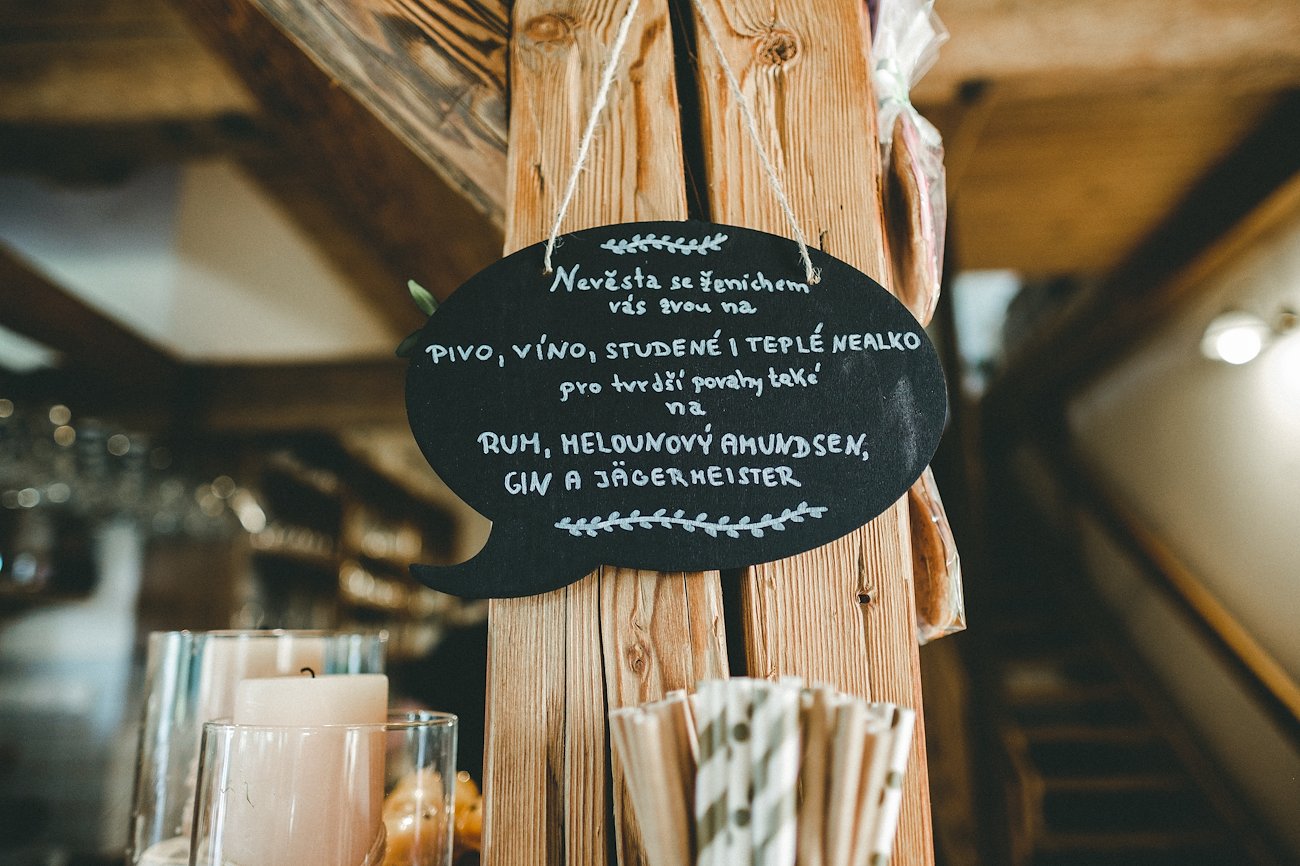 Nevěsta se ženichem
vás zvou na
PIVO, VÍNO, STUDENÉ I TEPLÉ NEALKO
pro tvrdší povahy také
na
RUM, MELOUNOVÝ AMUNDSEN,
GIN A JÄGERMEISTER